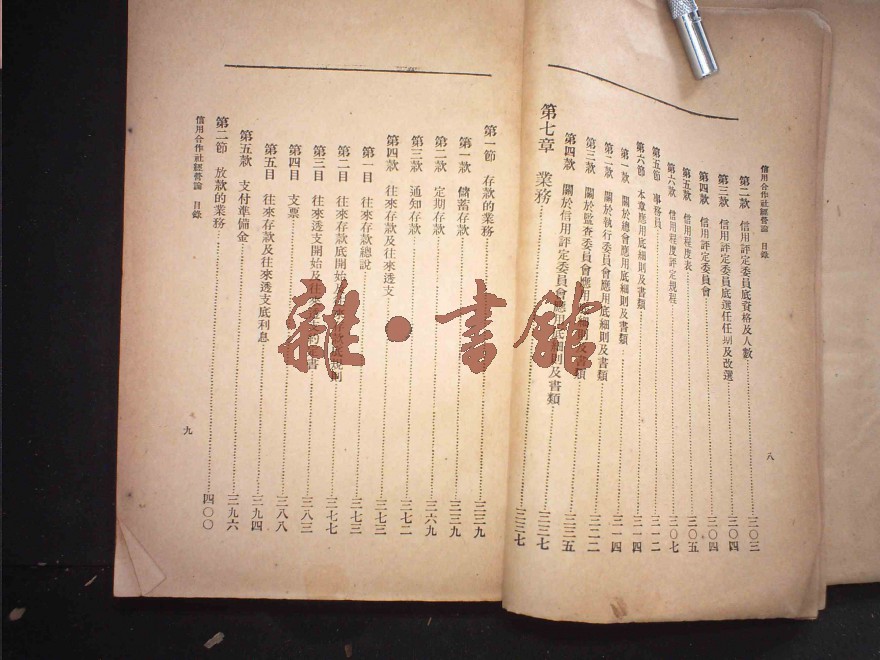 信用合作社經營論 目錄
第二款 信用評定委員底資格及人數 三〇三
第三款 信用評定委員底選任任期及改選 三〇四
第四款 信用評定委員會 三〇四
第五款 信用程度表 三〇五
第六款 信用程度評定規程 三〇七
第五節 事務員 三一二
第六節 本章應用底細則及書類 三一四
第一款 關於總會應用底細則及書類 三一四
第二款 關於執行委員會應用底細則及書類 三二二
第三款 關於監查委員會應用底細則及書類
第四款 關於信用評定委員會應用底細則及書類 三三五
第七章 業務 三三七
八
第一節 存款的業務 三三九
第一款 儲蓄存款 三三九
第二款 定期存款 三六九
第三款 通知存款 三七二
第四款 往來存款及往來透支 三七三
第一目 往來存款總說 三七三
第二目 往來存款底開始及 規則 三七七
第三目 往來透支開始及往來 書 三八三
第四目 支票 三八八
第五目 往來存款及往來透支底利息 三九四
第五款 支付準備金 三九六
第二節 放款的業務 四〇〇
信用合作社經營論 目錄
九
雜·書館